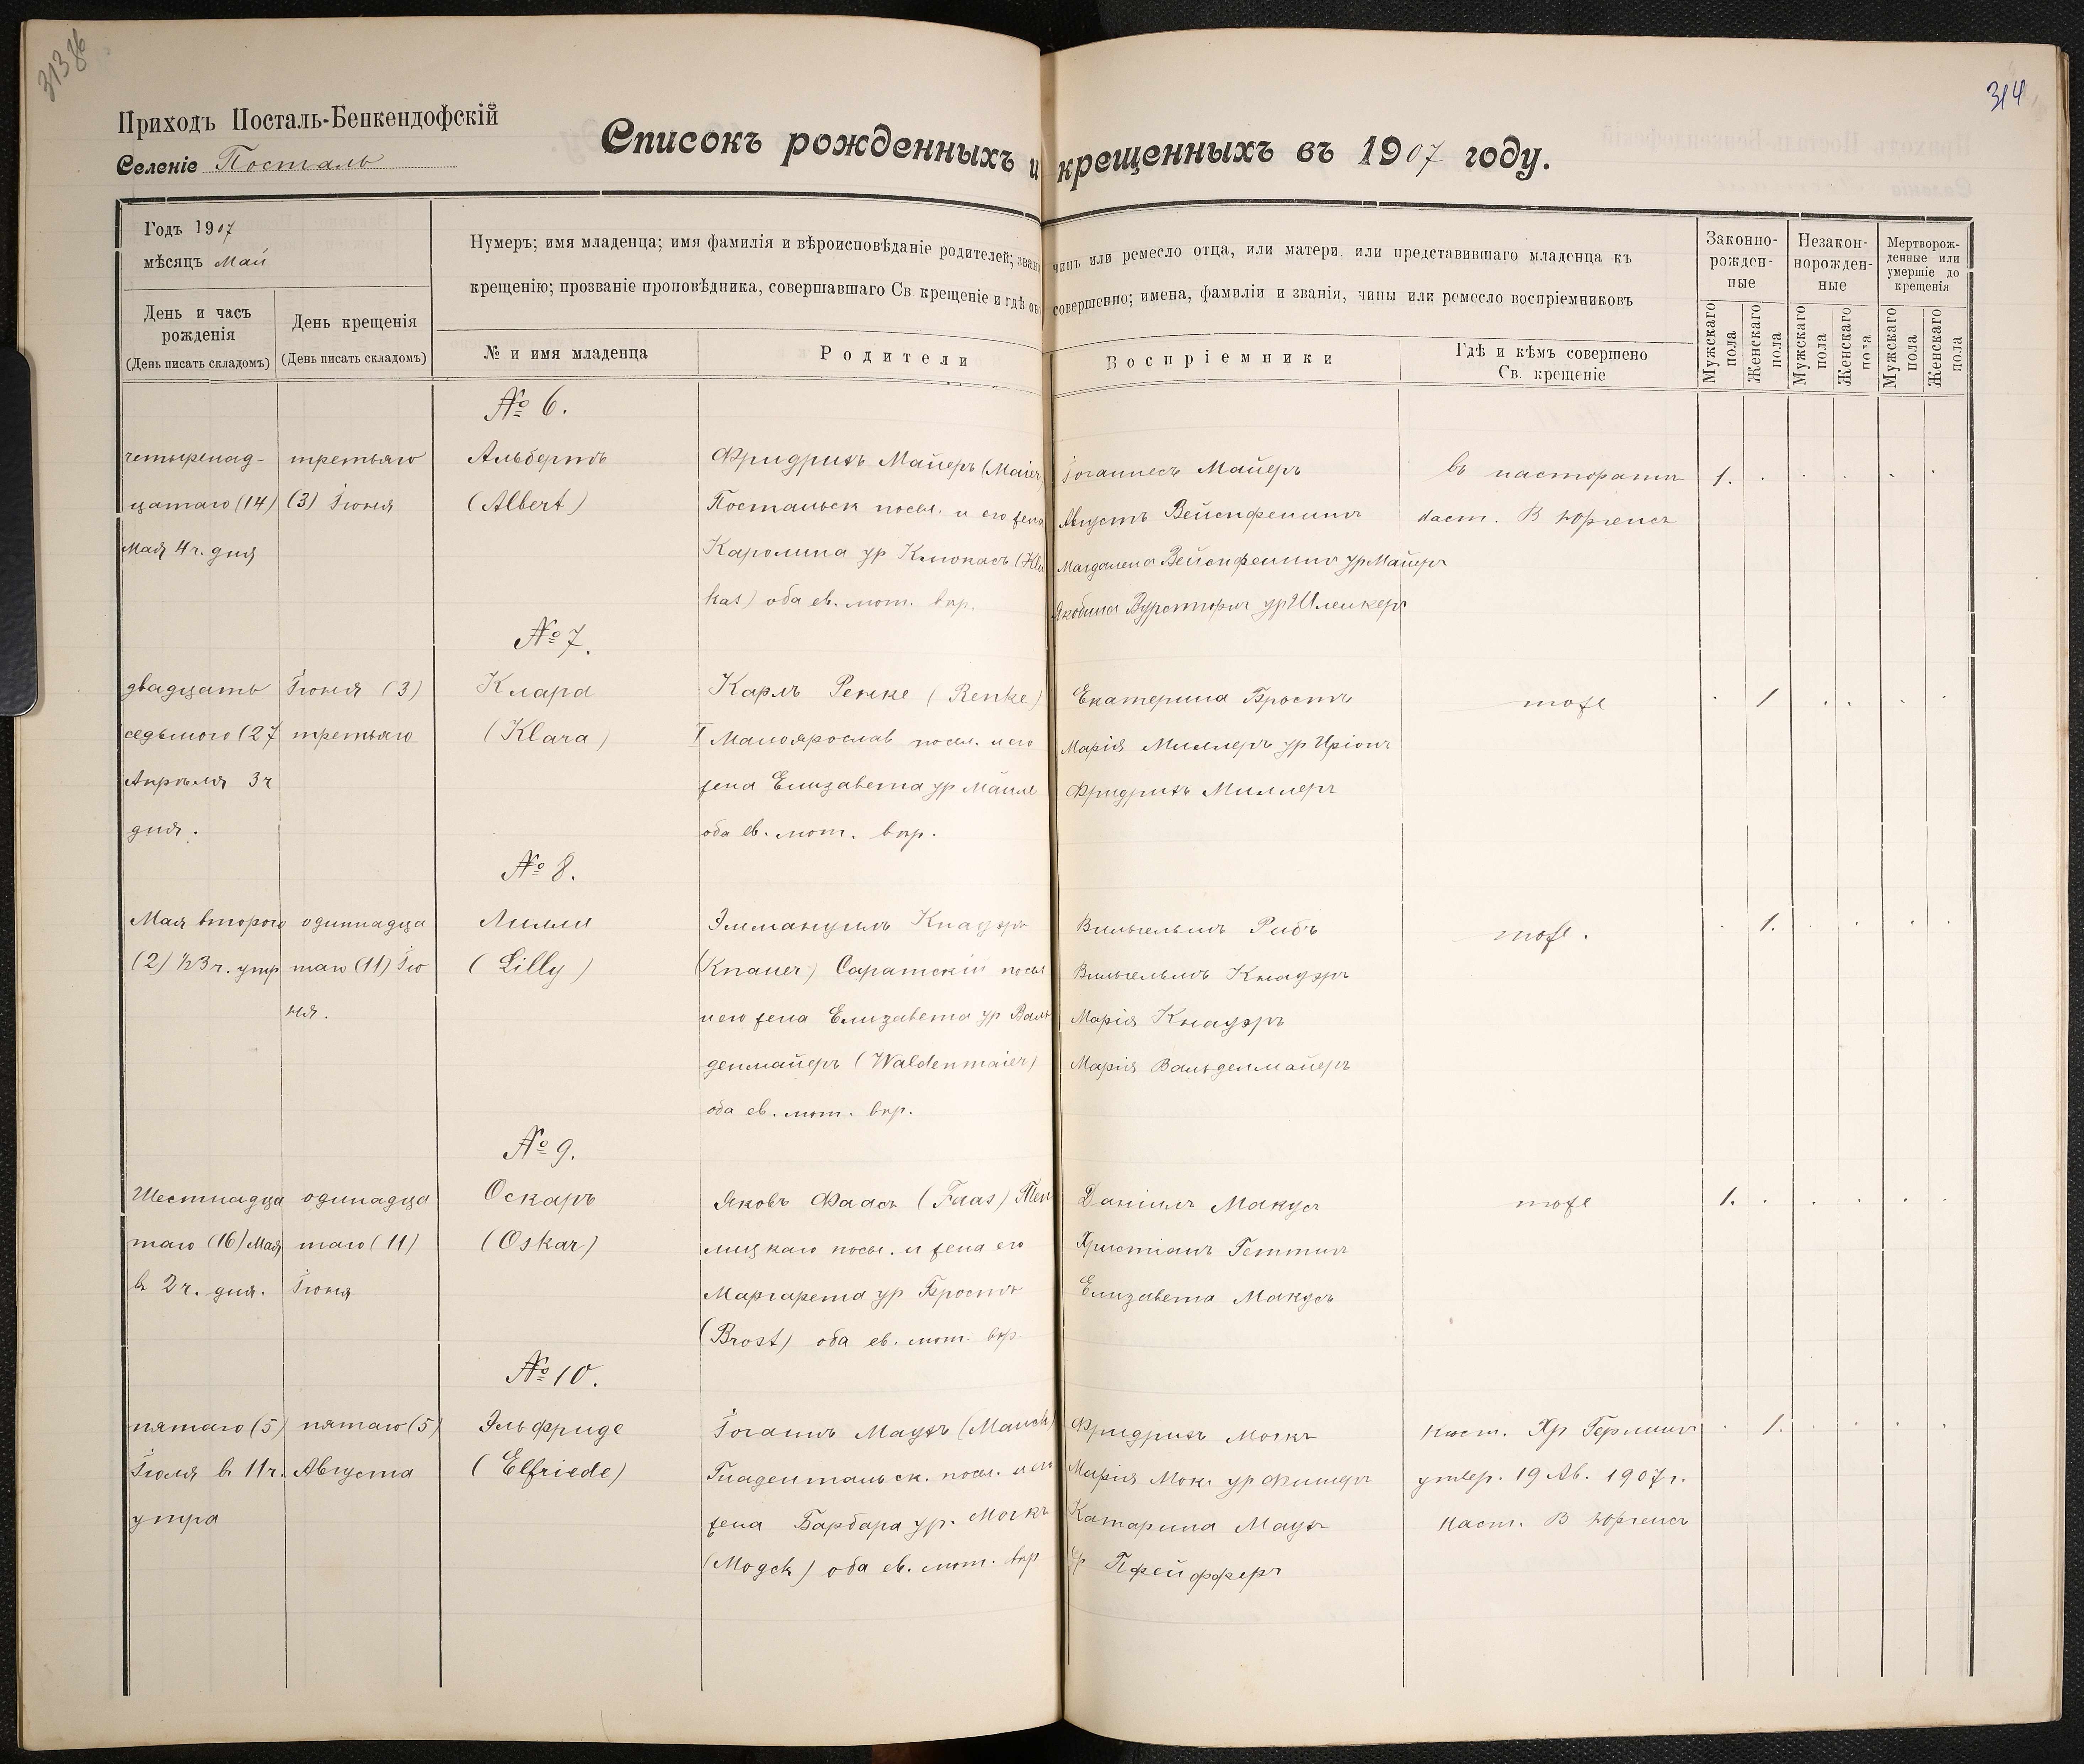 313 об
314
Приходъ Посталь-Бенкендофскій
Селеніе Посталь
Списокъ рожденныхъ и крещенныхъ въ 1907 году.
Годъ 1907
мѣсяцъ Май
День и часъ рожденія
(День писать складомъ)
День крещенія
(День писать складомъ)
Нумеръ; имя младенца; имя фамилія и вѣроисповѣданіе родителей; званіе чинъ или ремесло отца, или матери или представившаго младенца къ
крещенію; прозваніе проповѣдника, совершавшаго Св. крещеніе и гдѣ оно совершенно; имена, фамиліи и званія, чины или ремесло воспріемниковъ
№ и имя младенца
Родители
Воспріемники
Гдѣ и кѣмъ совершено
Св. крещеніе
Законно-
рожден-
ные
Незакон-
норожден-
ные
Мертворож-
денные или
умершіе до
крещенія
Мужскаго пола
Женскаго пола
Мужскаго пола
Женскаго пола
Мужскаго пола
Женскаго пола
№ 6.
четыренад-
цатаго (14)
Мая 4 ч. дня
третьяго
(3) Іюня
Альбертъ
(Albert)
Фридрихъ Майеръ (Maier
Постальск посел. и его жена
Каролина ур Клюкасъ (Klu
kas) оба ев. лют. вѣр.
Іоганнесъ Майеръ
Августъ Вейспфеннигъ
Магдалена Вейспфеннигъ ур Майеръ
Якобина ур Шленкеръ
въ пасторатѣ
Паст. В Юргенсъ
1.
№ 7.
двадцать
седьмого (27
Апрѣля 3 ч
дня.
Іюня (3)
третьяго
Клара
(Klara)
Карлъ Ренке (Renke)
I Малоярослав посел. и его
жена Елизавета ур
оба ев. лют. вѣр.
Екатерина Бростъ
Марія Миллеръ ур Иріонъ
Фридрихъ Миллеръ
тоже
1
№ 8.
Мая второго
(2) ½3 ч. утр
одиннадца
таго (11) Ію
ня.
Лилли
(Lilly)
Эммануилъ Кнауэръ
(Knauer) Саратскій посел
и его жена Елизавета ур Валь
денмайеръ (Waldenmaier)
оба ев. лют. вѣр.
Вильгельмъ Рибъ
Вильгельмъ Кнауэръ
Марія Кнауэръ
Марія Вальденмайеръ
тоже.
1.
№ 9.
Шестнадца
таго (16) Мая
в 2 ч. дня.
одинадца
таго (11)
Іюня
Оскаръ
(Oskar)
Яковъ Фаасъ (Faas) Теп
лицкаго посел. и жена его
Маргарета ур Бростъ
(Brost) оба ев. лют. вѣр.
Даніилъ Макусъ
Христіанъ Геттигъ
Елизавета Макусъ
тоже
1.
№ 10.
пятаго (5)
Іюля в 11 ч.
утра
пятаго (5)
Августа
Эльфриде
(Elfriede)
Іоганнъ Маухъ (Mauch)
Гнаденталъск. посел. и его
жена Барбара ур. Моккъ
(Mogck) оба ев. лют. вѣр
Фридрихъ Моккъ
Марія Мок. ур Фишеръ
Катарина Маухъ
ур Пфейфферъ
Кист. Хр Германнъ
утвер. 19 Ав. 1907 г.
Паст. В Юргенсъ
1.